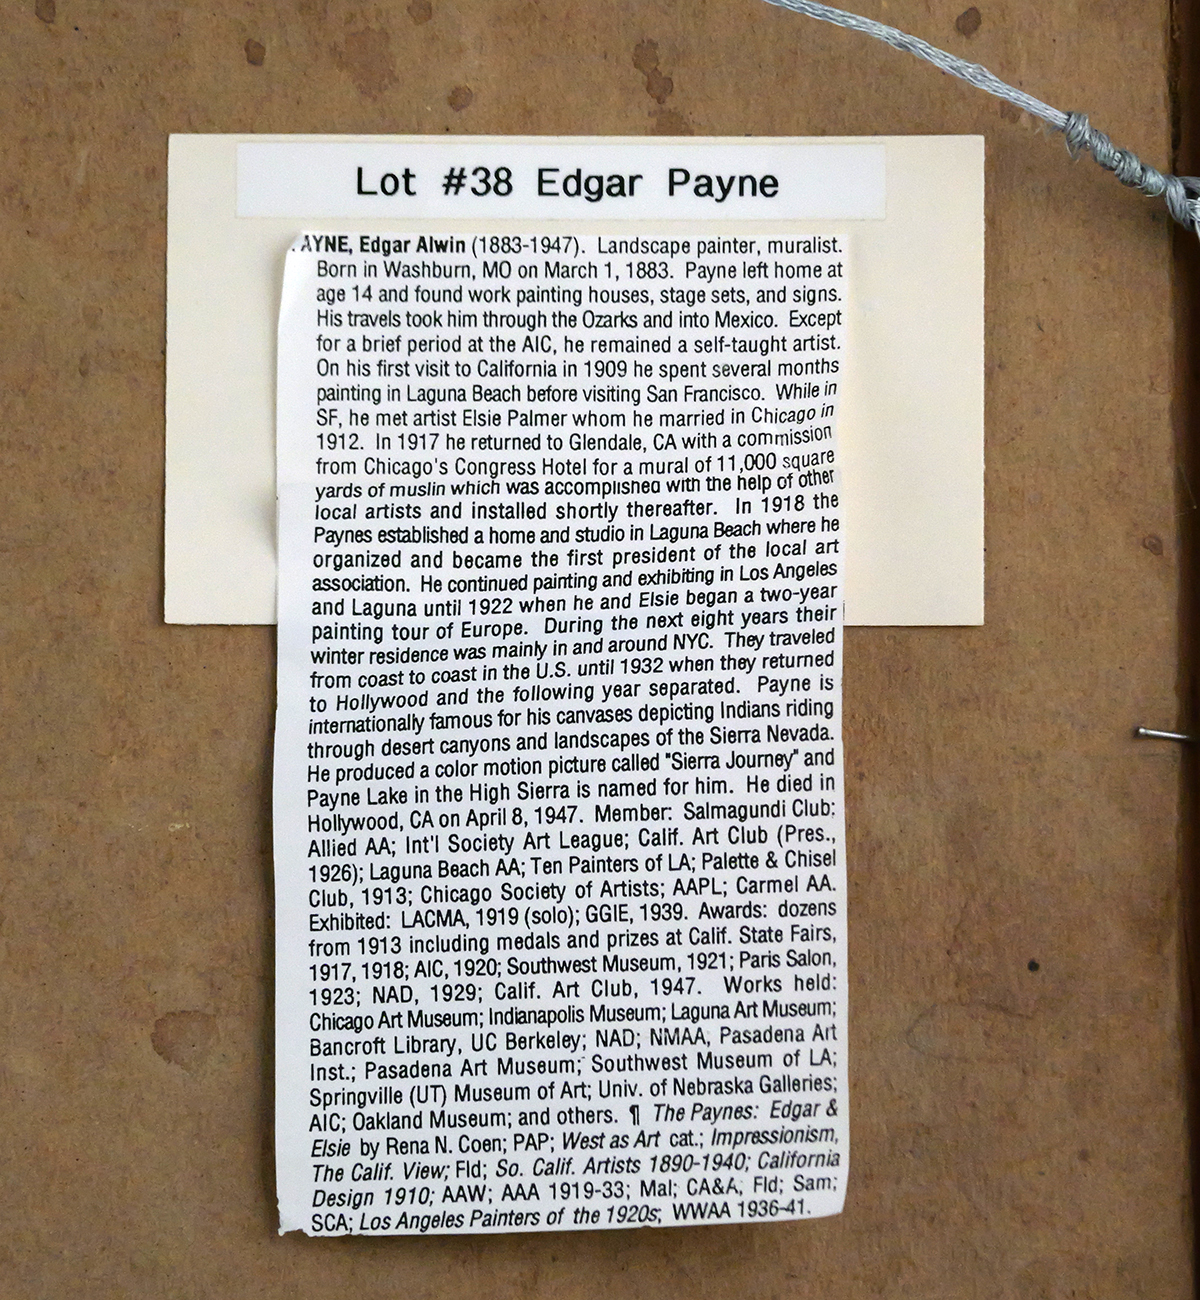 Lot #38 Edgar Payne
.AYNE, Edgar Alwin (1883-1947). Landscape painter, muralist.
Born in Washburn, MO on March 1, 1883. Payne left home at
age 14 and found work painting houses, stage sets, and signs.
His travels took him through the Ozarks and into Mexico. Except
for a brief period at the AIC, he remained a self-taught artist.
On his first visit to California in 1909 he spent several months
painting in Laguna Beach before visiting San Francisco. While in
SF, he met artist Elsie Palmer whom he married in Chicago in
1912. In 1917 he returned to Glendale, CA with a commission
from Chicago's Congress Hotel for a mural of 11,000 square
yards of muslin which was accomplished with the help of other
local artists and installed shortly thereafter. In 1918 the
Paynes established a home and studio in Laguna Beach where he
organized and became the first president of the local art
association. He continued painting and exhibiting in Los Angeles
and Laguna until 1922 when he and Elsie began a two-year
painting tour of Europe. During the next eight years their
winter residence was mainly in and around NYC. They traveled
from coast to coast in the U.S. until 1932 when they returned
to Hollywood and the following year separated. Payne is
internationally famous for his canvases depicting Indians riding
through desert canyons and landscapes of the Sierra Nevada.
He produced a color motion picture called "Sierra Journey" and
Payne Lake in the High Sierra is named for him. He died in
Hollywood, CA on April 8, 1947. Member: Salmagundi Club;
Allied AA; Int'l Society Art League; Calif. Art Club (Pres.,
1926); Laguna Beach AA; Ten Painters of LA; Palette & Chisel
Club, 1913; Chicago Society of Artists; AAPL; Carmel AA.
Exhibited: LACMA, 1919 (solo); GGIE, 1939. Awards: dozens
from 1913 including medals and prizes at Calif. State Fairs,
1917, 1918; AIC, 1920; Southwest Museum, 1921; Paris Salon,
1923; NAD, 1929; Calif. Art Club, 1947. Works held:
Chicago Art Museum; Indianapolis Museum; Laguna Art Museum;
Bancroft Library, UC Berkeley; NAD; NMAA, Pasadena Art
Inst.; Pasadena Art Museum; Southwest Museum of LA;
Springville (UT) Museum of Art; Univ. of Nebraska Galleries;
AIC; Oakland Museum; and others. ¶ The Paynes: Edgar &
Elsie by Rena N. Coen; PAP; West as Art cat.; Impressionism,
The Calif. View; Fld; So. Calif. Artists 1890-1940; California
Design 1910; AAW; AAA 1919-33; Mal; CA&A, Fld; Sam;
SCA; Los Angeles Painters of the 1920s; WWAA 1936-41.